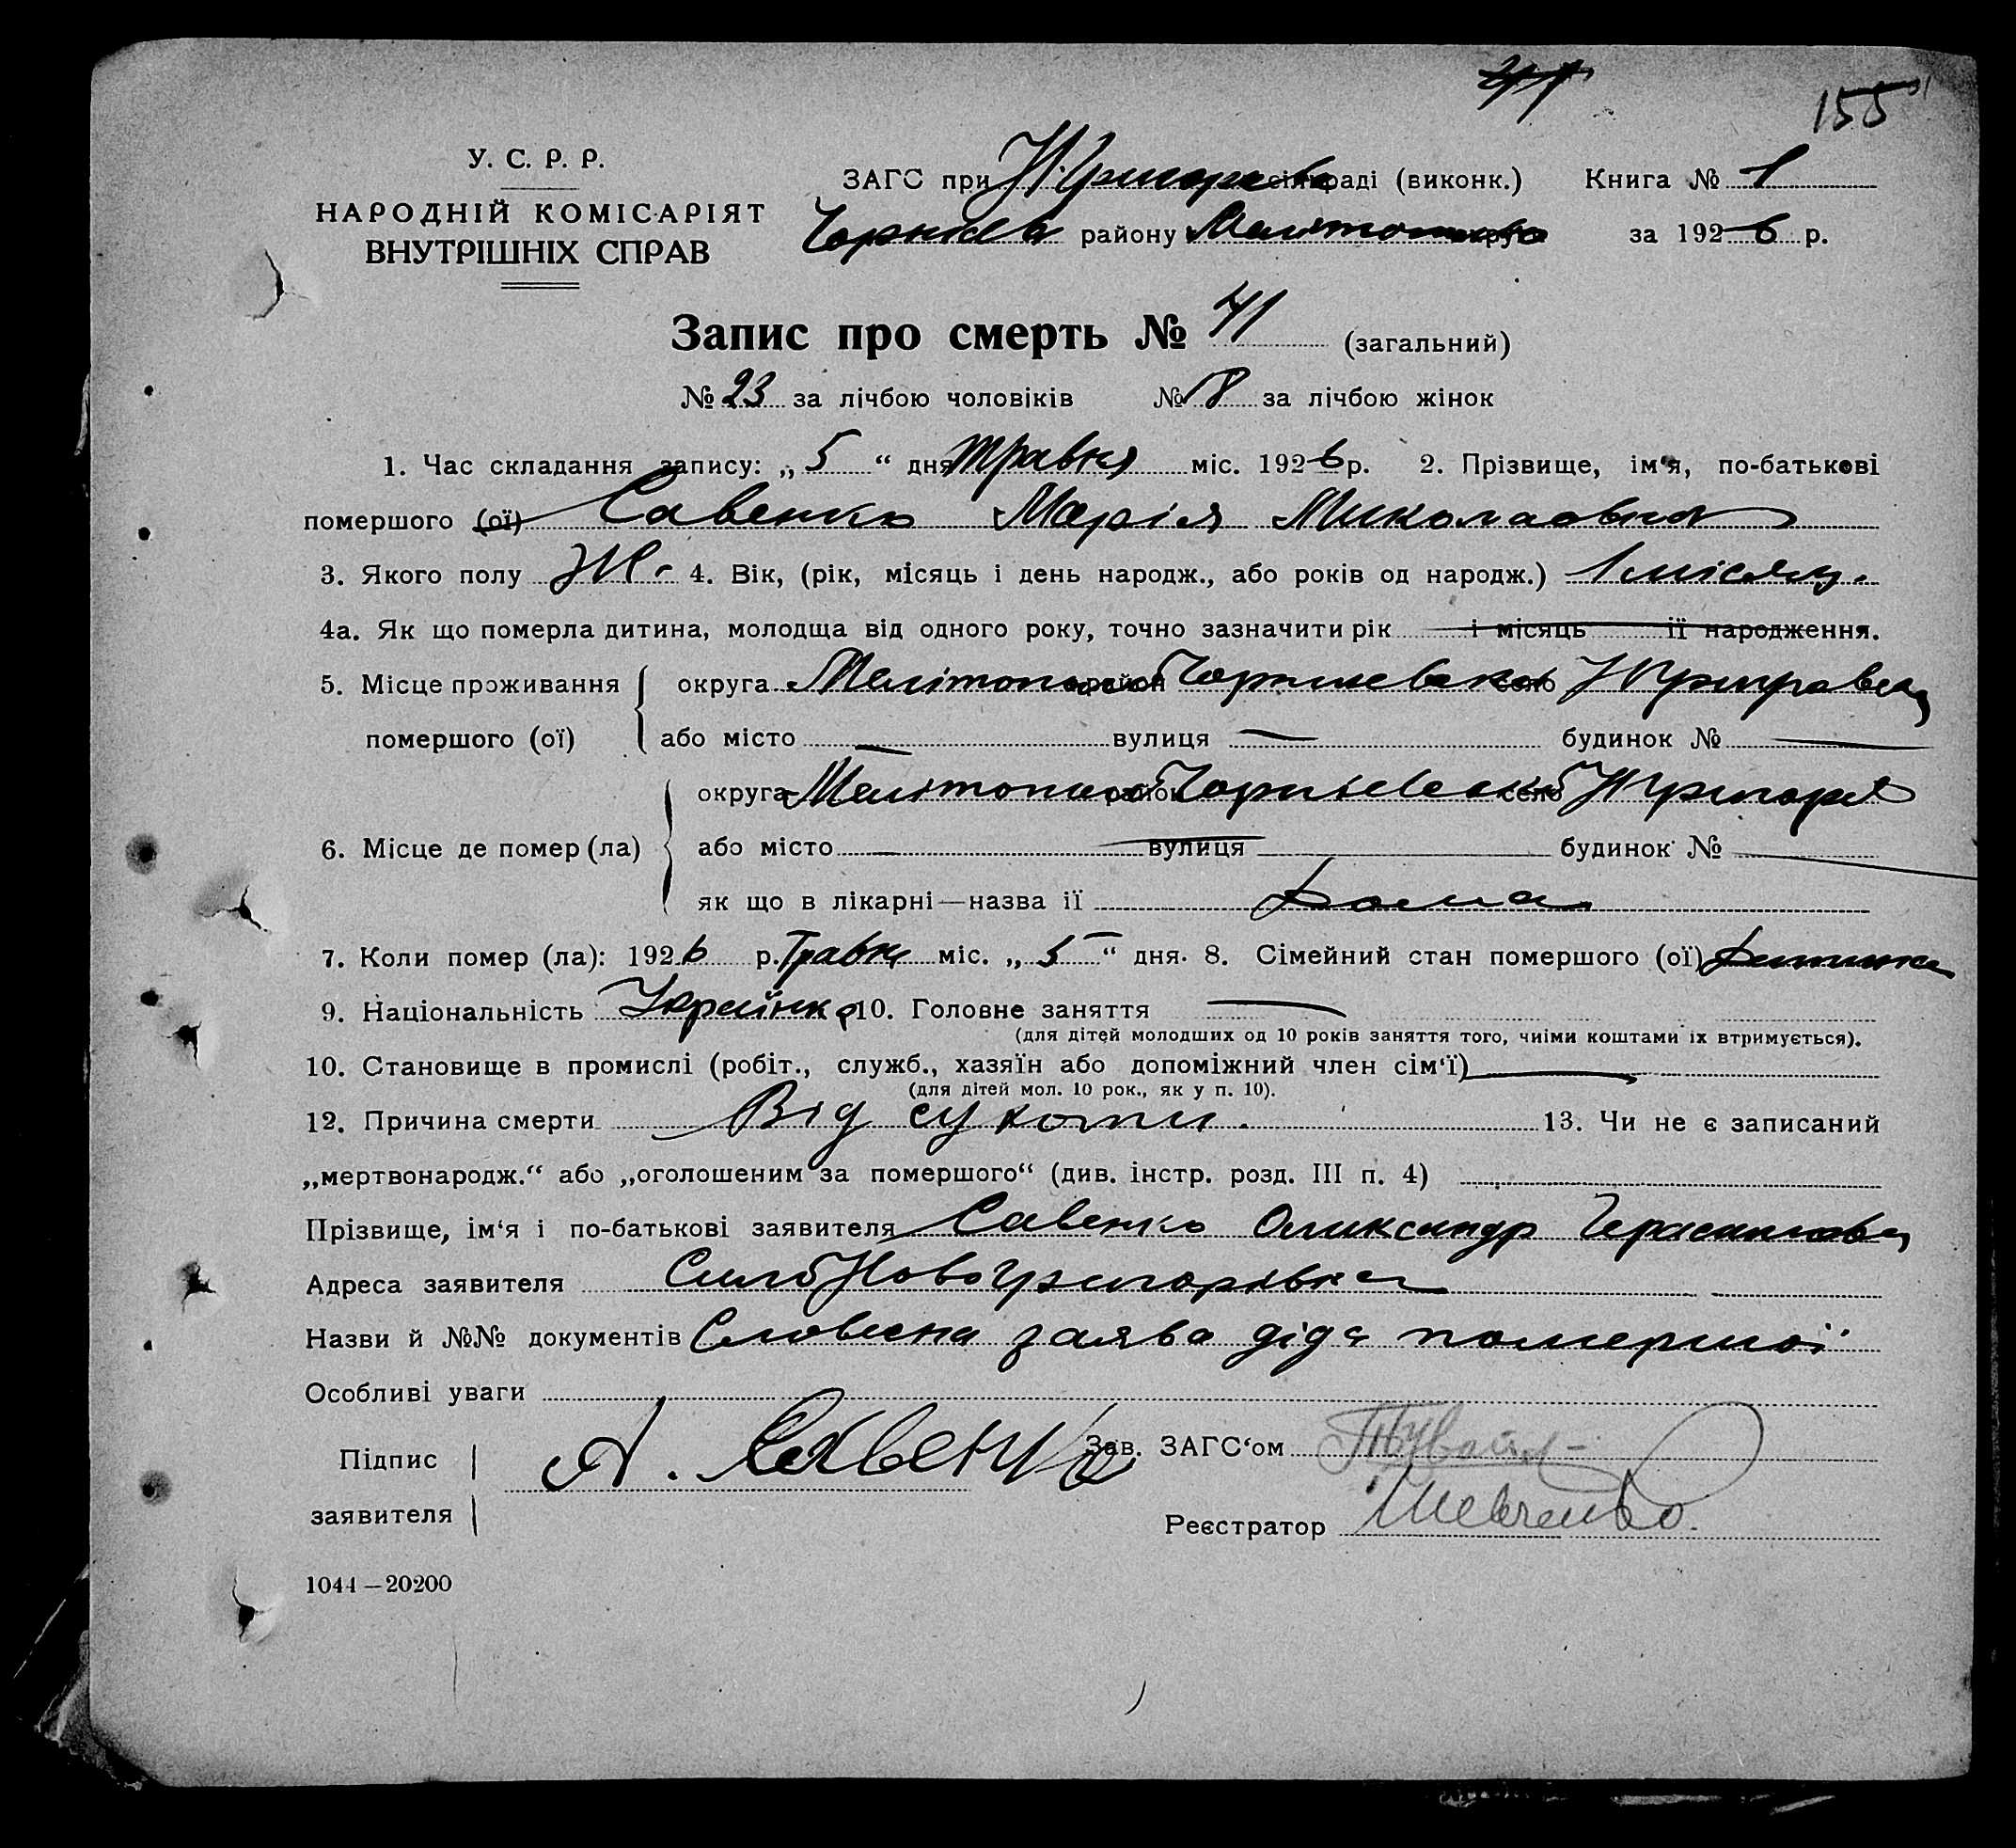 155
У. С. Р. Р.
НАРОДНІЙ КОМІСАРІЯТ
ВНУТРІШНІХ СПРАВ
ЗАГС при сільраді (виконк.) Книга № 1
району за 1926 р.
Запис про смерть № 41 (загальний)
№ 23 за лічбою чоловіків № 18 за лічбою жінок
1. Час складання запису: „5“ дня Травня міс. 1926 р. 2. Прізвище, ім‘я, по-батькові
помершого (ої) Савенко Марія Миколаовна
3. Якого полу Ж. 4. Вік, (рік, місяць і день народж., або років од народж.) 1 місяц.
4а. Як що померла дитина, молодща від одного року, точно зазначити рік і місяць її народження.
5. Місце проживання округа район село
помершого (ої) або місто — вулиця — будинок № —
округа район село
6. Місце де помер (ла) або місто — вулиця будинок № —
як що в лікарні—назва її Дома
7. Коли помер (ла): 1926 р. Травн міс. „5“ дня. 8. Сімейний стан помершого (ої) Дитинка
9. Національність Украінка 10. Головне заняття —
(для дітей молодших од 10 років заняття того, чиїми коштами їх втримується).
10. Становище в промислі (робіт., служб., хазяїн або допоміжний член сім‘ї) —
(для дітей мол. 10 рок., як у п. 10).
12. Причина смерти Від сухоти. 13. Чи не є записаний
„мертвонародж.“ або „оголошеним за помершого“ (див. інстр. розд. III п. 4)
Прізвище, ім‘я і по-батькові заявителя Савенко Олександр Герасимови
Адреса заявителя Село Новогригорівка
Назви й №№ документів Словесна заява діда помершої
Особливі уваги
Підпис
заявителя
А. Савенко
Зав. ЗАГС‘ом
Реєстратор Шевченко.
1044—20200